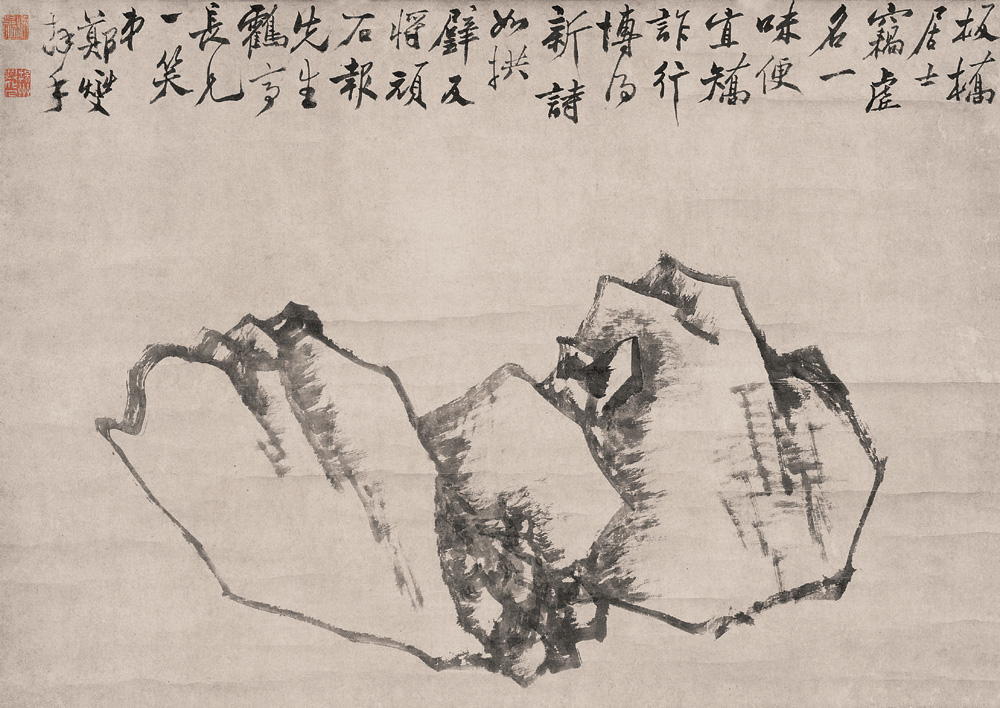 板橋
居士
竊虛
名一
味便
宜矯
詐行
博得
新詩
如拱
璧反
將頑
石報
先生
鶴亭
長兄
一笑
弟
鄭燮
拜手